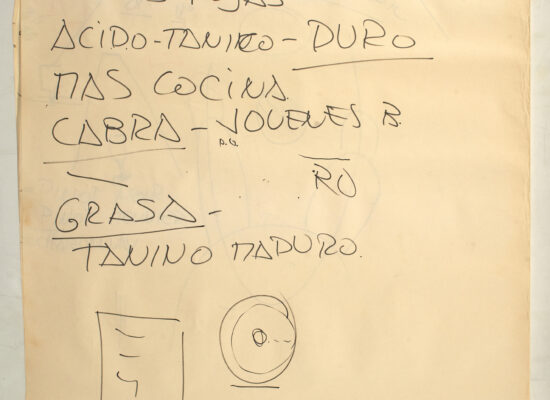 ACIDO-TANICO - DURO
MAS COCINA
CABRA - JOVENES B.
RO
GRASA -
TANINO MADURO.